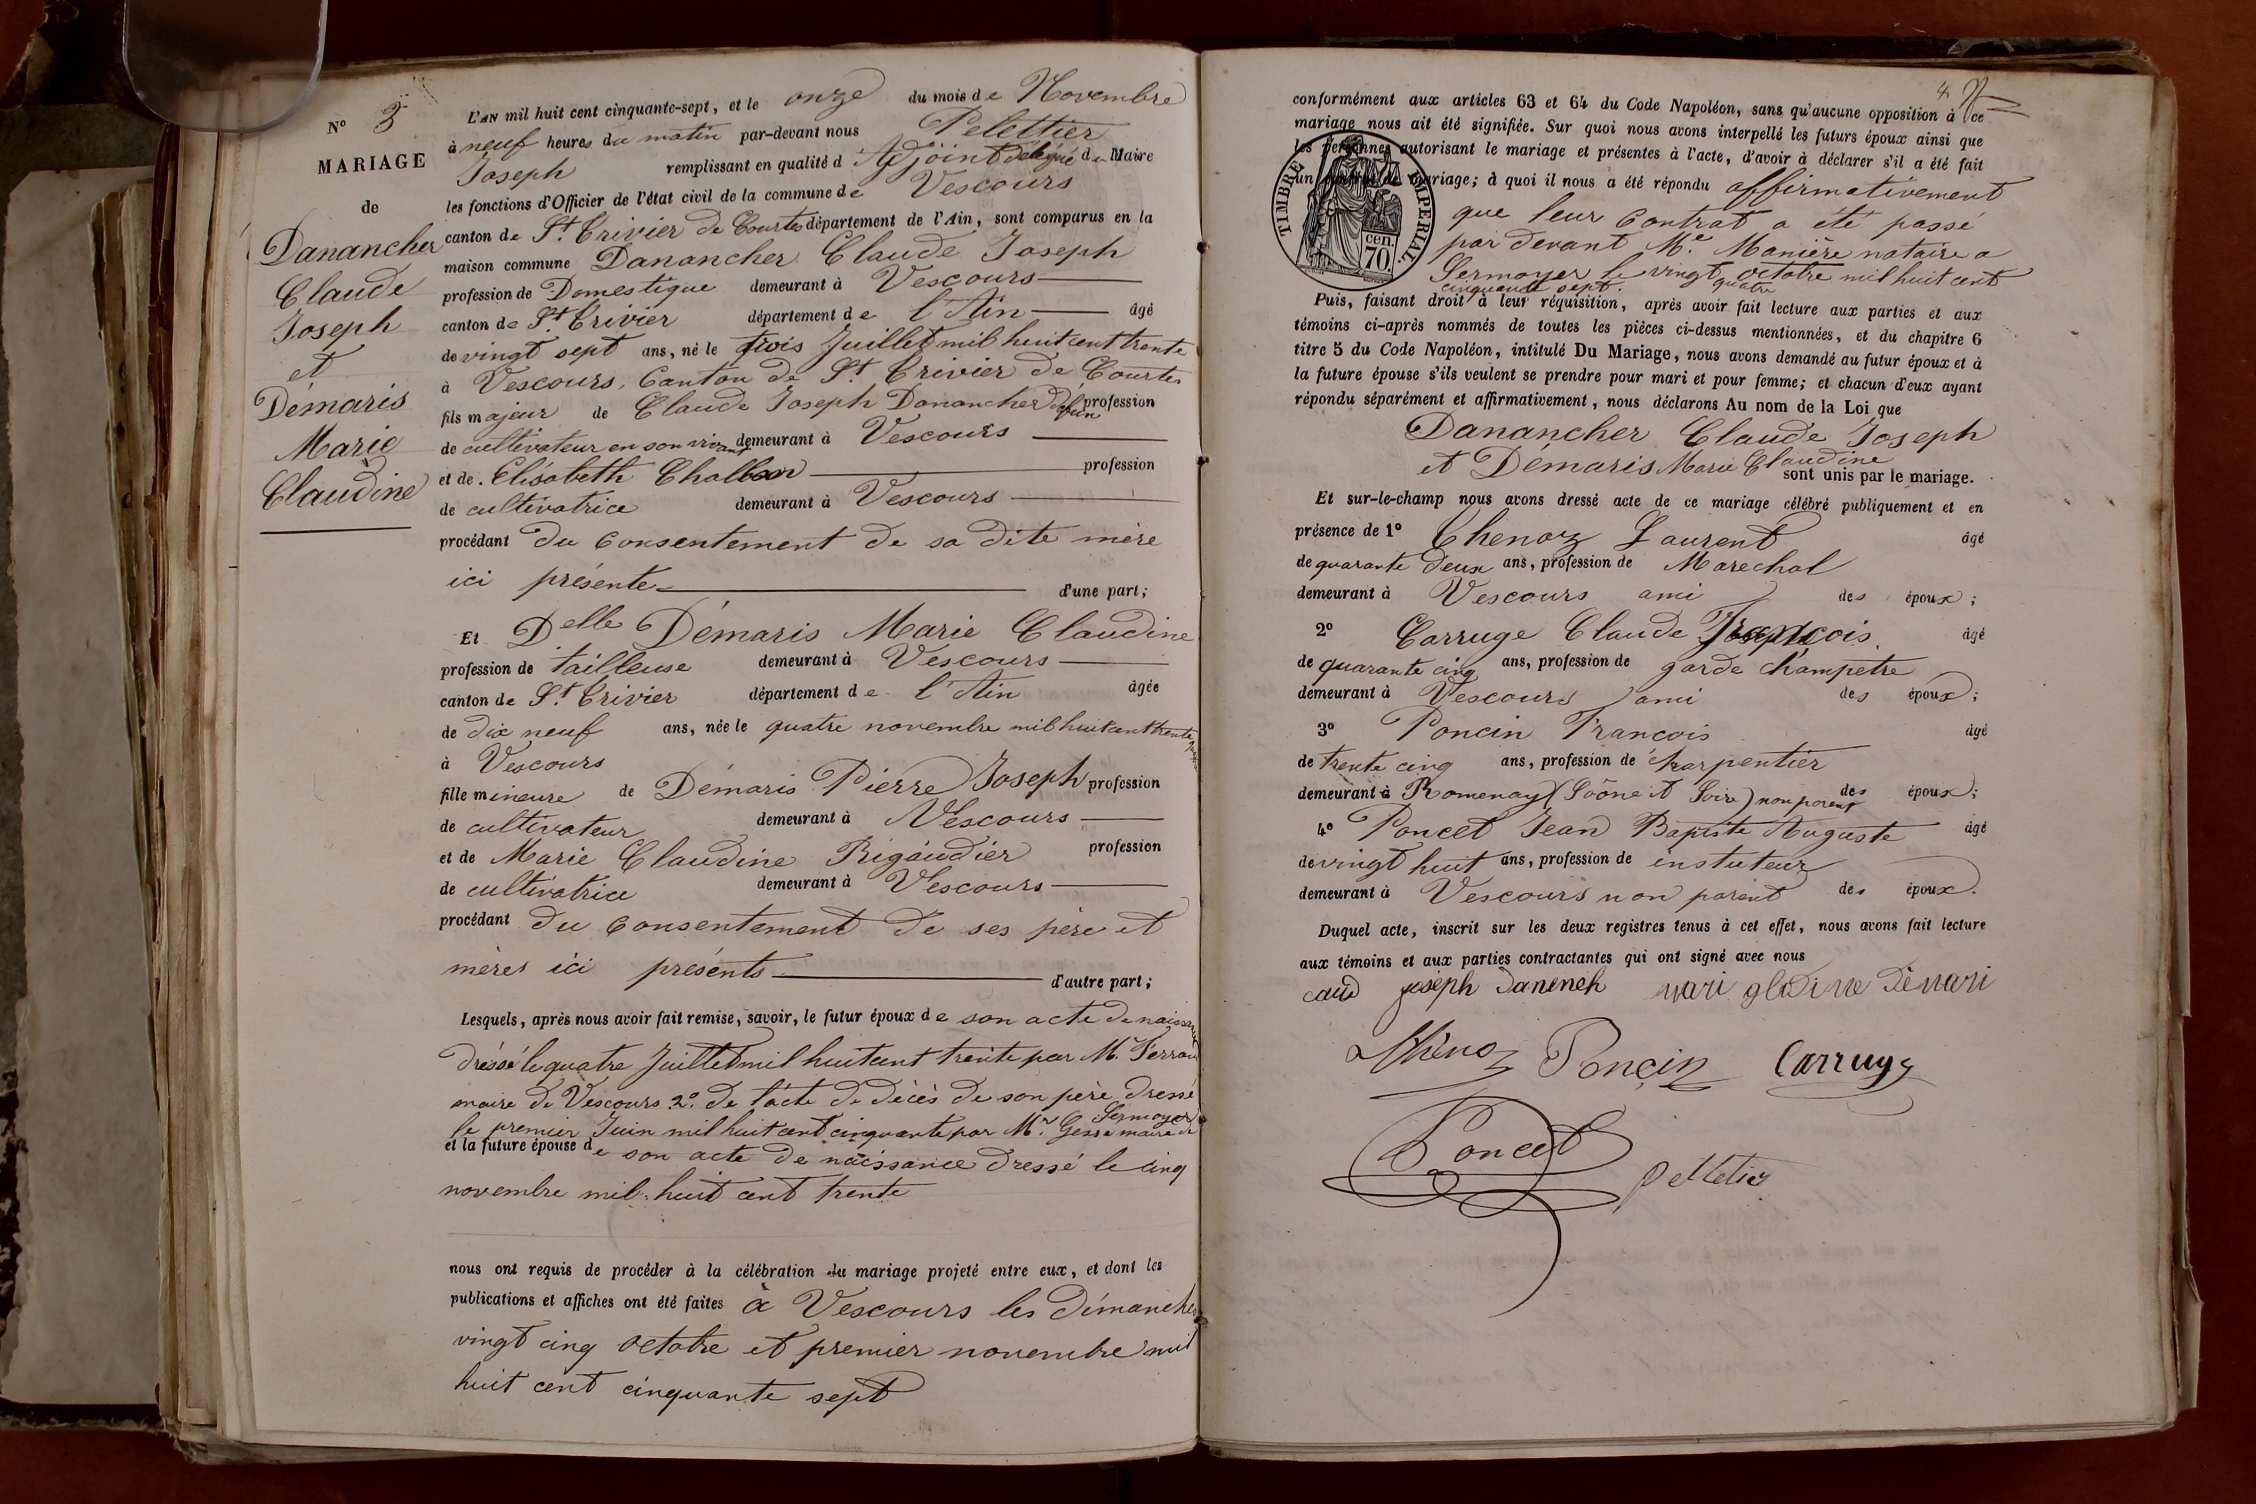 Nº 3
MARIAGE
de
Danancher
Claude
Joseph
et
Démaris
Marie
Claudine
L'AN mil huit cent cinquante-sept, et le onze du mois de Novembre
à neuf heures du matin par-devant nous Pelettier
Joseph remplissant en qualité d'Adjoint Délégué du Maire
les fonctions d'Officier de l'état civil de la commune de Vescours
canton de St. Trivier de Courtes département de l'Ain, sont comparus en la
maison commune Danancher Claude Joseph
profession de Domestique demeurant à Vescours
canton de St Trivier département de l'Ain âgé
de vingt sept ans, né le trois Juillet mil huit cent trente
à Vescours, Canton de St. Trivier de Courtes
fils majeur de Claude Joseph Danancher défunt profession
de cultivateur en son vivant demeurant à Vescours
et de Elisabeth profession
de cultivatrice demeurant à Vescours
procédant du consentement de sa dite mère
ici présente d'une part;
Et Delle Démaris Marie Claudine
profession de tailleuse demeurant à Vescours
canton de St. Trivier département de l'Ain âgée
de dix neuf ans, née le quatre novembre mil huit cent trente
à Vescours
fille mineure de Démaris Pierre Joseph profession
de cultivateur demeurant à Vescours
et de Marie Claudine Rigaudier profession
de cultivatrice demeurant à Vescours
procédant du consentement de ses père et
mères ici présents d'autre part;
Lesquels, après nous avoir fait remise, savoir, le futur époux de son acte de naissance
dréssé le quatre Juillet mil huit cent trente par Mr.
maire de Vescours 2º. de l'acte de décès de son père dressé
le premier Juin mil huit cent cinquante par Mr. maire de Sermoyer
et la future épouse de son acte de naissance dressé le cinq
novembre mil huit cent trente
nous ont requis de procéder à la célébration du mariage projeté entre eux, et dont les
publications et affiches ont été faites à Vescours les dimanches
vingt cinq octobre et premier novembre mil
huit cent cinquante sept
4
conformément aux articles 63 et 64 du Code Napoléon, sans qu'aucune opposition à ce
mariage nous ait été signifiée. Sur quoi nous avons interpellé les futurs époux ainsi que
les personnes autorisant le mariage et présentes à l'acte, d'avoir à déclarer s'il a été fait
un contrat de mariage; à quoi il nous a été répondu affirmativement
TIMBRE IMPERIAL.
cen.
70.
que leur contrat a été passé
par devant Me. Manière notaire a
Sermoyer le vingt quatre octobre mil huit cent
cinquante sept.
Puis, faisant droit à leur réquisition, après avoir fait lecture aux parties et aux
témoins ci-après nommés de toutes les pièces ci-dessus mentionnées, et du chapitre 6
titre 5 du Code Napoléon, intitulé Du Mariage, nous avons demandé au futur époux et à
la future épouse s'ils veulent se prendre pour mari et pour femme; et chacun d'eux ayant
répondu séparément et affirmativement, nous déclarons Au nom de la Loi que
Danancher Claude Joseph
et Démaris Marie Claudine
sont unis par le mariage.
Et sur-le-champ nous avons dressé acte de ce mariage célébré publiquement et en
présence de 1º Chenoz Laurent âgé
de quarante deux ans, profession de Marechal
demeurant à Vescours ami des époux;
2º Carruge Claude François âgé
de quarante cinq ans, profession de garde champetre
demeurant à Vescours ami des époux;
3º Poncin Francois âgé
de trente cinq ans, profession de charpentier
demeurant à Romenay (Sâone et Loire) non parent des époux;
4º Poncet Jean Baptiste Auguste âgé
de vingt huit ans, profession de instuteur
demeurant à Vescours non parent des époux.
Duquel acte, inscrit sur les deux registres tenus à cet effet, nous avons fait lecture
aux témoins et aux parties contractantes qui ont signé avec nous
joseph
Poncin Carruge
Poncet
pelletier